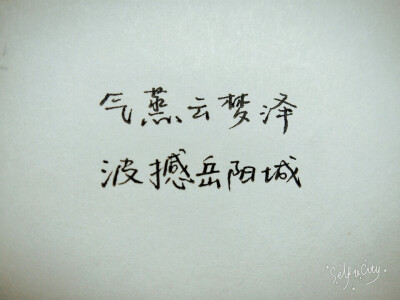 气蒸云梦泽
波撼岳阳城
Self City